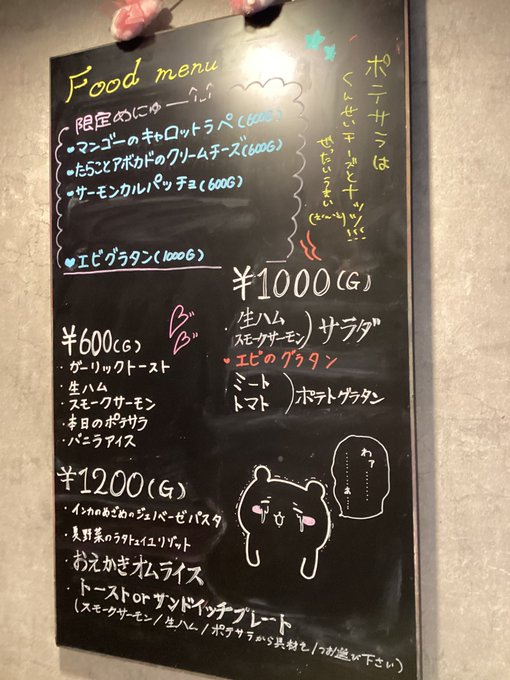 Food menu
限定めにゅー
マンゴーのキャロットラペ(600G)
たらことアボカドのクリームチーズ(600G)
サーモンカルパッチョ(600G)
エビグラタン(1000G)
ポテサラは
くんせいチーズとナッツ!!!
ぜったいうまい
¥1000(G)
生ハム
スモークサーモン)サラダ
エビのグラタン
ミート
トマト)ポテトグラタン
¥600(G)
・ガーリックトースト
・生ハム
スモークサーモン
・本日のポテサラ
・バニラアイス
¥1200(G)
・インカのめざめのジェノベーゼパスタ
・夏野菜のラタトゥイユリゾット
・おえかきオムライス
・トーストorサンドイッチプレート
(スモークサーモン/生ハム/ポテサラから具材を1つお選び下さい)
わァ
……ぁ…